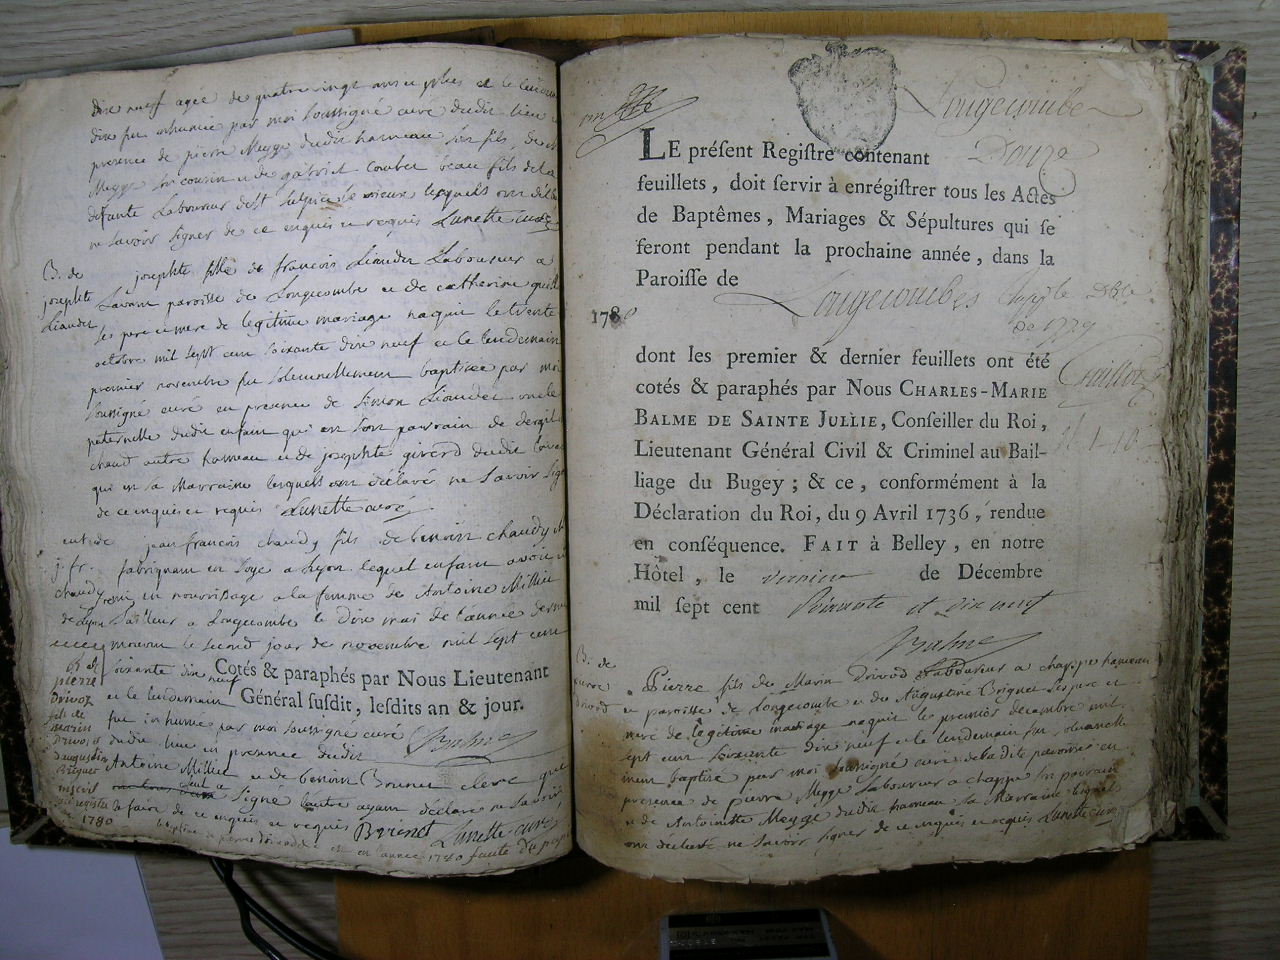 dix neuf agée de quatre vingt ans et plus et le lendemain
dix fut inhumée par moi soussigné curé dudit lieu en
presence de pierre Megge dudit hameau son fils, de
Megge son cousin et de gabriel Combet beau fils de la
defunte Laboureur de St Sulpice le vieux lesquels ont déclaré
ne savoir signer de ce enquis et requis Lunette curé
B. de
josephte
Liauder
josephte fille de françois Liauder Laboureur a
Lavant paroisse de Longecombe et de catherine
ses pere et mere de legitime mariage naquit le trente
octobre mil sept cent soixante dix neuf et le lendemain
premier novembre fut solemnellement baptisée par moi
soussigné curé en presence de Simon Liauder oncle
paternelle dudit enfant qui est son parrain de
chaud autre hameau et de josephte girerd dudit
qui est sa Marraine lesquels ont déclaré ne savoir signer
de ce enquis et requis Lunette curé
ent. de
j. fr.
chaudy
de Lyon
jean francois chaudy fils de benoist chaudy
fabriquant en soye a Lyon lequel enfant avoit
remi en nourrissage a la femme de Antoine Millier
Tailleur a Longecombe le dix mai de l'année
mourut le second jour de novembre mil sept cent
soixante dix neuf
et le lendemain
Cotés & paraphés par Nous Lieutenant
Général susdit, lesdits an & jour.
Balme
fut inhumé par moi soussigné curé
dudit lieu en presence dudit
Antoine Millier et de benoist Brunet clerc qui
a signé l'autre ayant déclaré ne savoir
le faire de ce enquis et requis Brunet Lunette curé
B. de
pierre
Drivoz
fils de
marin
Drivoz
d'augustine
Briguet
inscrit
registre
1780
baptême de pierre Drivod est en l'année 1780 faute de
Longecombe
LE préſent Regiſtre contenant Douze
feuillets, doit ſervir à enrégiſtrer tous les Actes
de Baptêmes, Mariages & Sépultures qui ſe
feront pendant la prochaine année, dans la
Paroiſſe de Longecombes
1780
de 1779
dont les premier & dernier feuillets ont été
cotés & paraphés par Nous CHARLES-MARIE
BALME DE SAINTE JULLIE, Conſeiller du Roi,
Lieutenant Général Civil & Criminel au Bail-
liage du Bugey ; & ce, conformément à la
Déclaration du Roi, du 9 Avril 1736, rendue
en conſéquence. FAIT à Belley, en notre
Hôtel, le de Décembre
mil ſept cent soixante et dix neuf
Balme
B. de
pierre
Drivod
Pierre fils de Marin Drivod Laboureur a chappe hameau
en paroisse de Longecombe et de Augustine Briguet ses pere et
mere de legitime mariage naquit le premier decembre mil
sept cent soixante dix neuf et le lendemain fut solemnelle
ment baptisé par moi soussigné curé de la dite paroisse en
presence de pierre Megge Laboureur a chappe son parrain
et de Antoinette Megge dudit hameau sa Marraine lesquels
ont déclaré ne savoir signer de ce enquis et requis Lunette curé